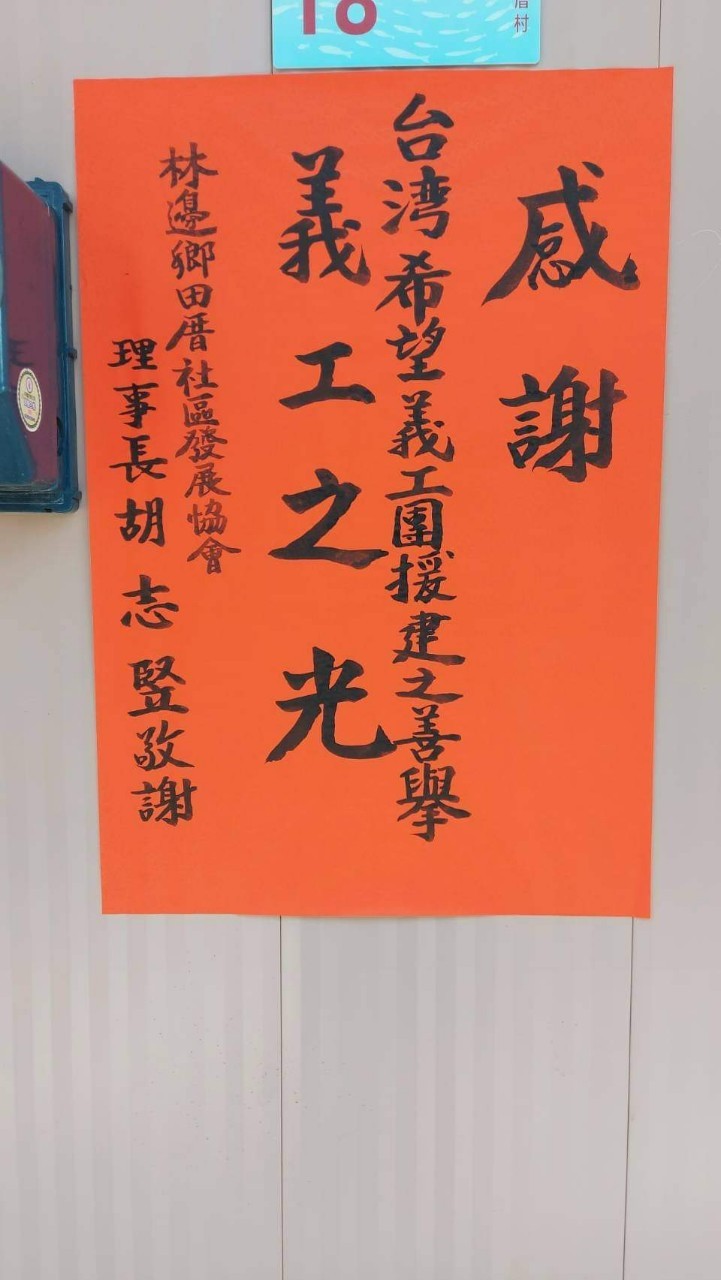 18
厝村
感謝
台湾希望義工團援建之善舉
義工之光
林邊鄉田厝社區發展協會
理事長胡志竪敬謝